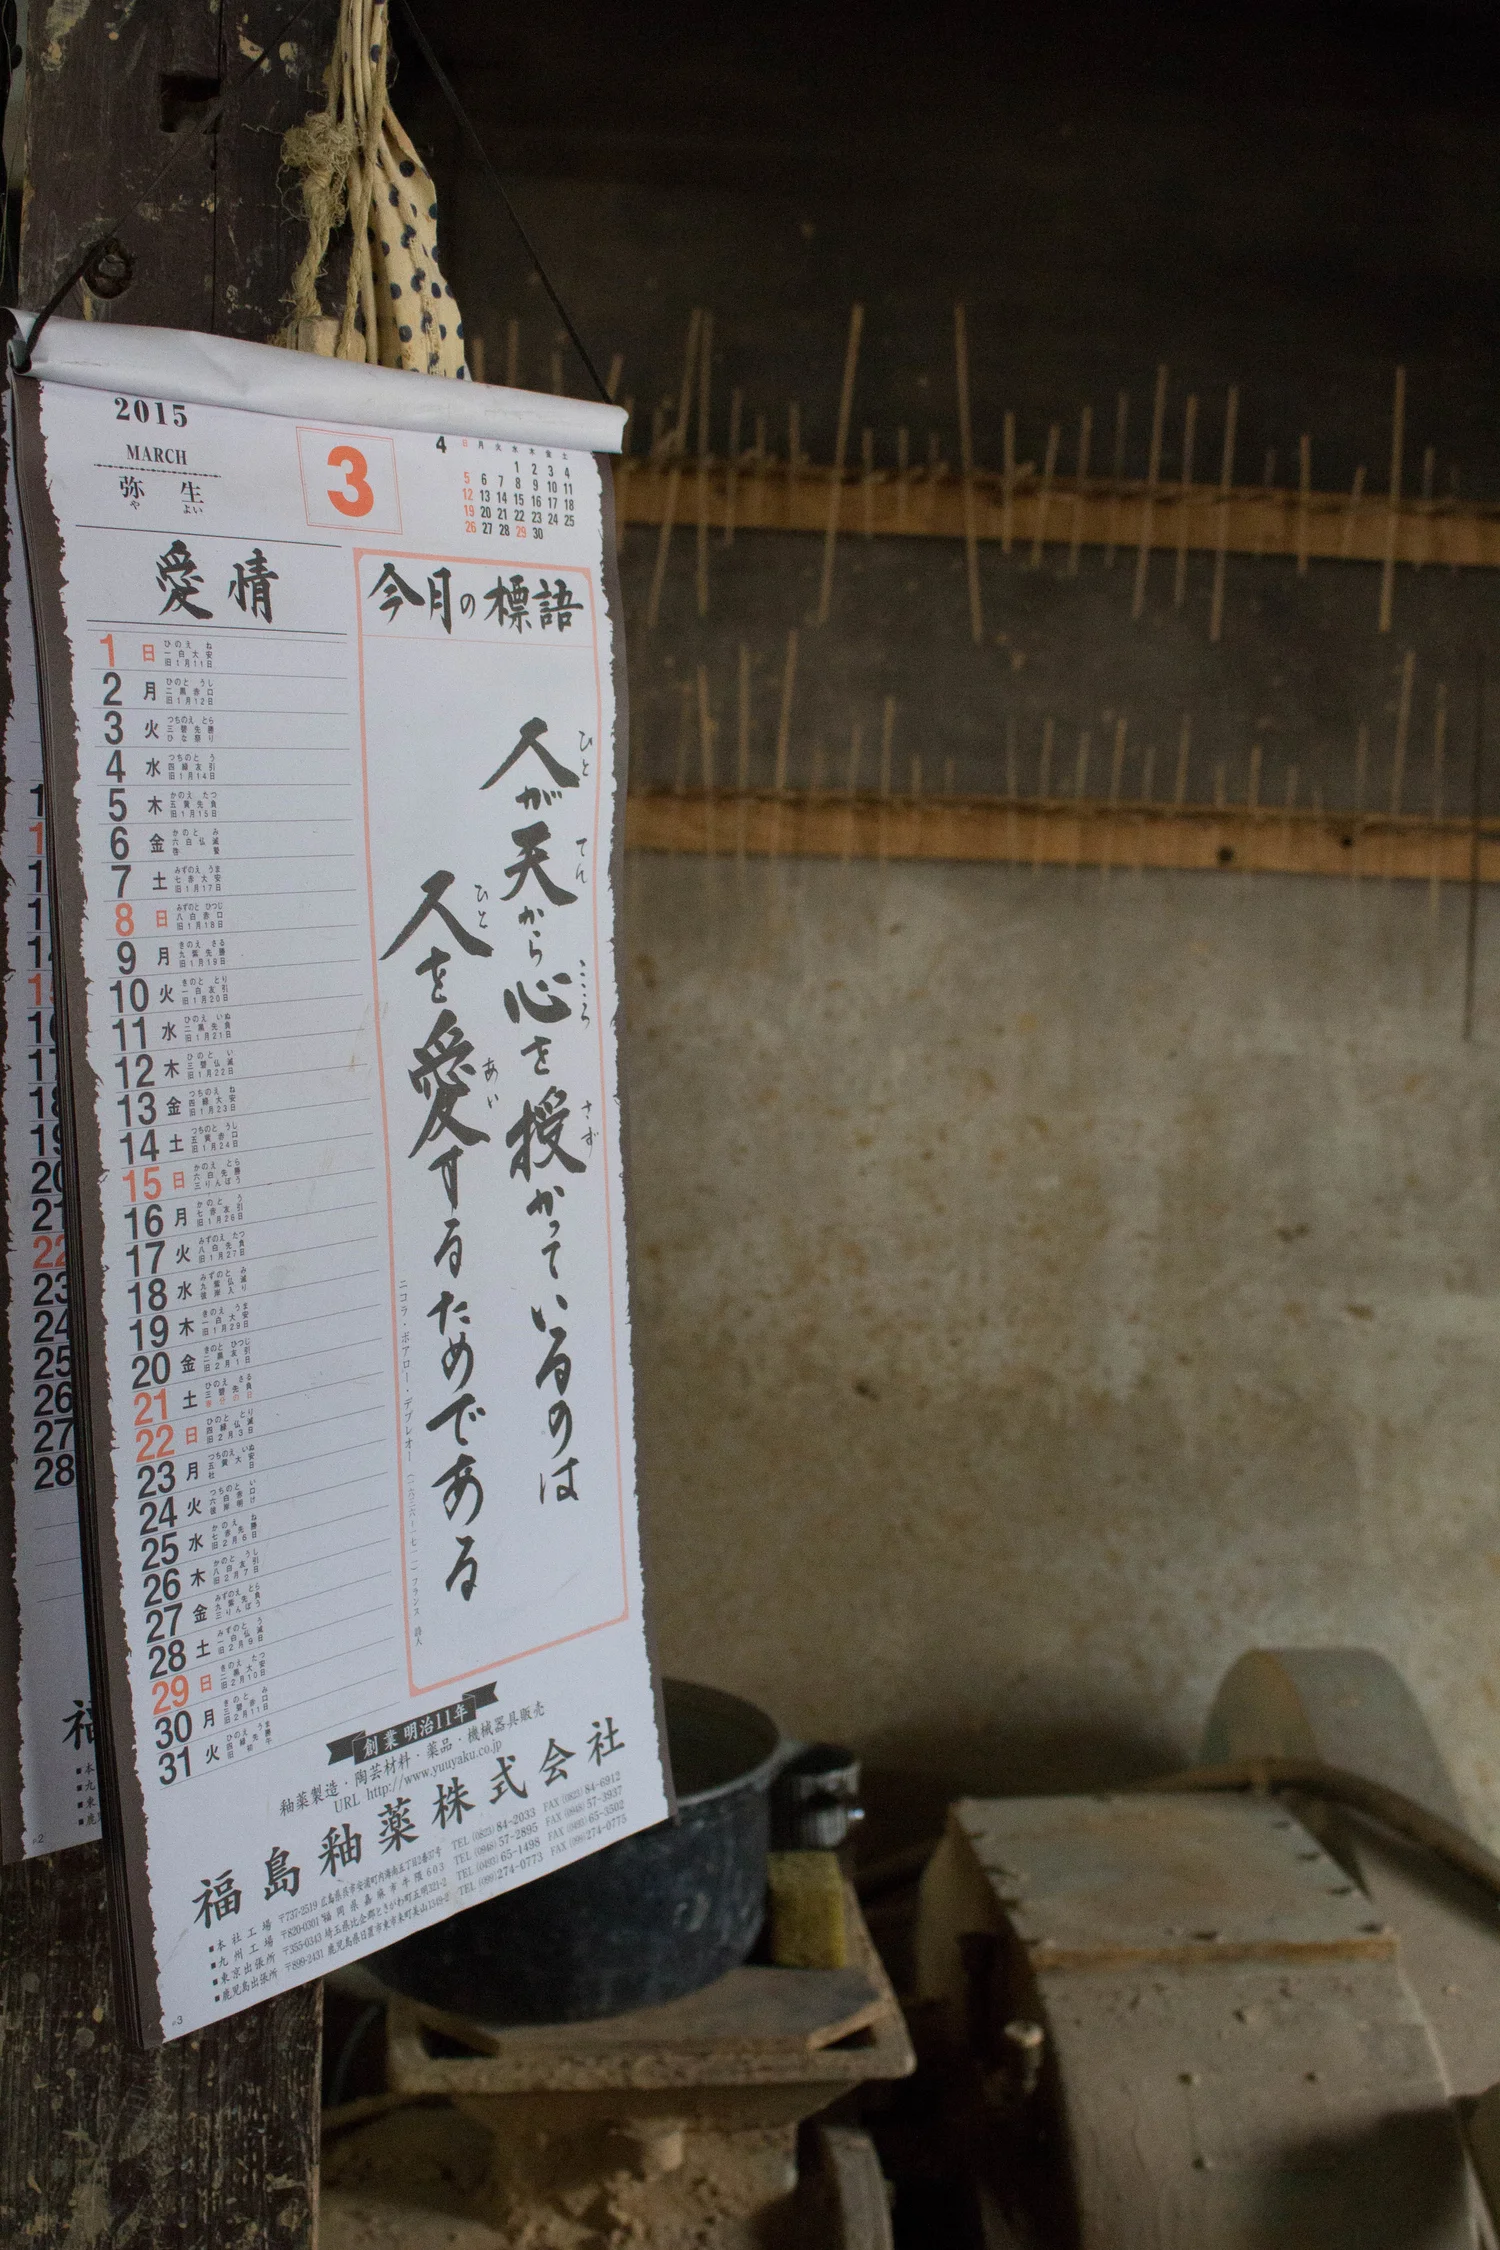 2015
MARCH
弥生
や よい
3
4 日 月 火 水 木 金 土
1 2 3 4
5 6 7 8 9 10 11
12 13 14 15 16 17 18
19 20 21 22 23 24 25
26 27 28 29 30
愛情
今月の標語
人が天から心を授かっているのは
ひと てん こころ さず
人を愛するためである
ひと あい
ニコラ・ボアロー・デプレオー (一六三六~一七一一) フランス 詩人
1 日 ひのえ ね 一白大安 旧1月11日
2 月 ひのと うし 二黒赤口 旧1月12日
3 火 つちのえ とら 三碧先勝 ひな祭り
4 水 つちのと う 四緑友引 旧1月14日
5 木 かのえ たつ 五黄先負 旧1月15日
6 金 かのと み 六白仏滅 啓蟄
7 土 みずのえ うま 七赤大安 旧1月17日
8 日 みずのと ひつじ 八白赤口 旧1月18日
9 月 きのえ さる 九紫先勝 旧1月19日
10 火 きのと とり 一白友引 旧1月20日
11 水 ひのえ いぬ 二黒先負 旧1月21日
12 木 ひのと い 三碧仏滅 旧1月22日
13 金 つちのえ ね 四緑大安 旧1月23日
14 土 つちのと うし 五黄赤口 旧1月24日
15 日 かのえ とら 六白先勝 三りんぼう
16 月 かのと う 七赤友引 旧1月26日
17 火 みずのえ たつ 八白先負 旧1月27日
18 水 みずのと み 九紫仏滅 彼岸入り
19 木 きのえ うま 一白大安 旧1月29日
20 金 きのと ひつじ 二黒友引 旧2月1日
21 土 ひのえ さる 三碧先負 春分の日
22 日 ひのと とり 四緑仏滅 旧2月3日
23 月 つちのえ いぬ 五黄大安 社日
24 火 つちのと い 六白赤口 彼岸明け
25 水 かのえ ね 七赤先勝 旧2月6日
26 木 かのと うし 八白友引 旧2月7日
27 金 みずのえ とら 九紫先負 三りんぼう
28 土 みずのと う 一白仏滅 旧2月9日
29 日 きのえ たつ 二黒大安 旧2月10日
30 月 きのと み 三碧赤口 旧2月11日
31 火 ひのえ うま 四緑先勝 旧初午
創業 明治11年
釉薬製造・陶芸材料・薬品・機械器具販売
URL http://www.yuuyaku.co.jp
福島釉薬株式会社
■本社工場 〒737-2519 広島県呉市安浦町内海南五丁目2番37号 TEL (0823) 84-2033 FAX (0823) 84-6912
■九州工場 〒820-0301 福岡県嘉麻市牛隈603 TEL (0948) 57-2895 FAX (0948) 57-3937
■東京出張所 〒355-0343 埼玉県比企郡ときがわ町五明321-2 TEL (0493) 65-1498 FAX (0493) 65-3502
■鹿児島出張所 〒899-2431 鹿児島県日置市東市来町美山1349-2 TEL (099) 274-0773 FAX (099) 274-0775
19
20
21
22
23
24
25
26
27
28
福
■本
■九
■東
■鹿